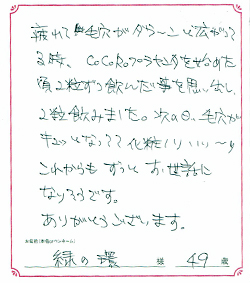 疲れて毛穴がダラ〜ンと広がって
る時、CoCoRoプラセンタを始めた
頃2粒ずつ飲んだ事を思い出し、
2粒飲みました。次の日、毛穴が
キュッとなってて化粧ノリいい〜!!
これからもずっとお世話に
なりそうです。
ありがとうございます。
お名前(本名orペンネーム)
緑の環 様 49 歳